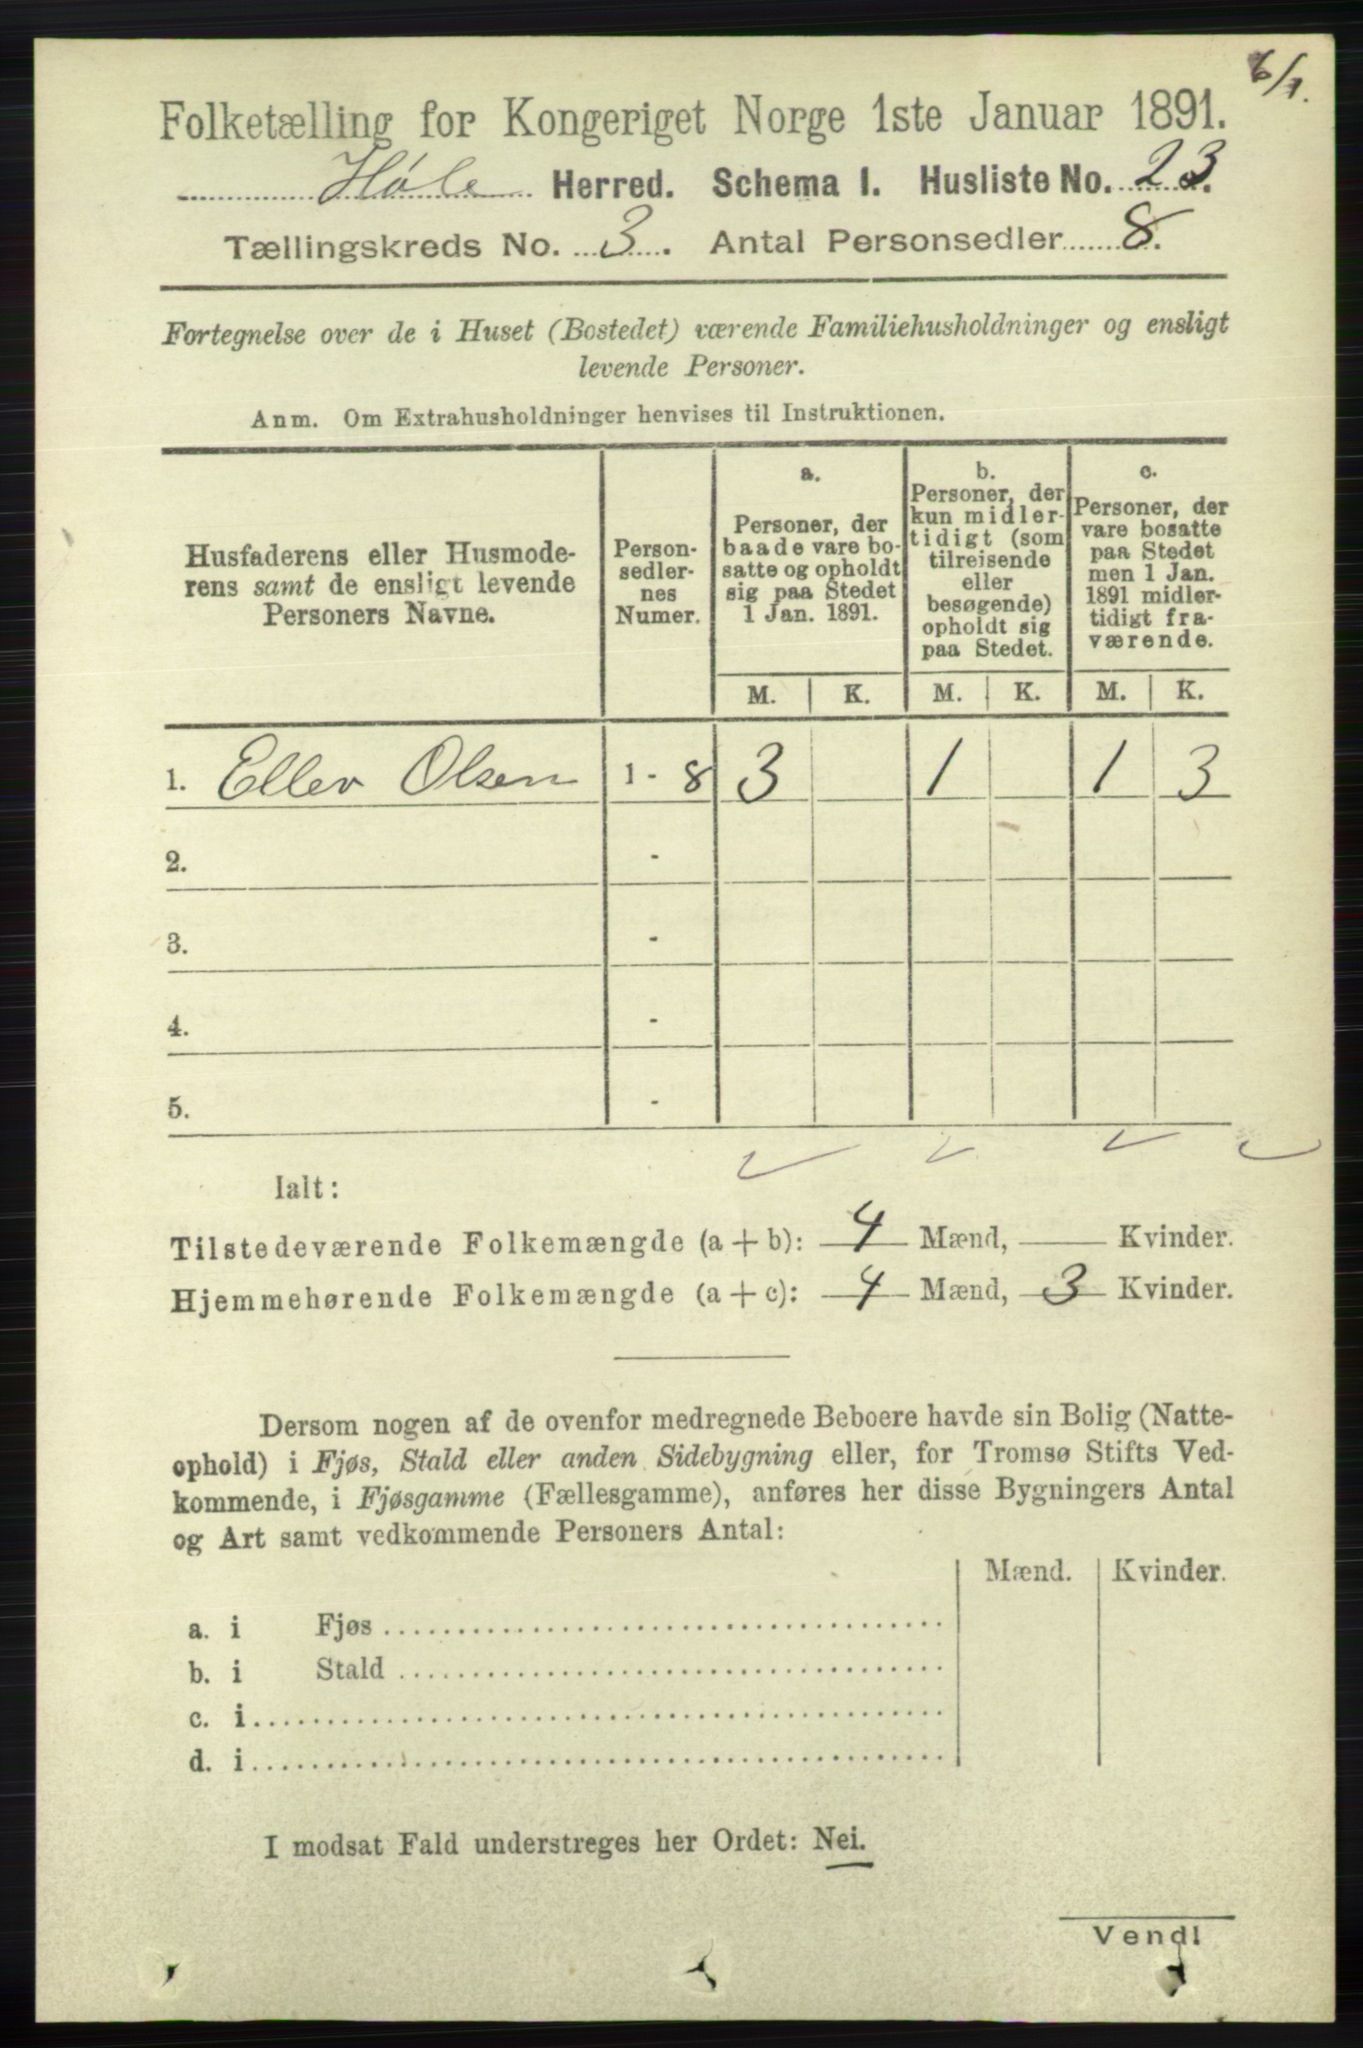 6/1.
Folketælling for Kongeriget Norge 1ste Januar 1891.
Høle Herred. Schema I. Husliste No. 23.
Tællingskreds No. 3. Antal Personsedler 8.
Fortegnelse over de i Huset (Bostedet) værende Familiehusholdninger og ensligt
levende Personer.
Anm. Om Extrahusholdninger henvises til Instruktionen.
Husfaderens eller Husmode-
rens samt de ensligt levende
Personers Navne.
Person-
sedler-
nes
Numer.
a.
Personer, der
baade vare bo-
satte og opholdt
sig paa Stedet
1 Jan. 1891.
b.
Personer, der
kun midler-
tidigt (som
tilreisende
eller
besøgende)
opholdt sig
paa Stedet.
c.
Personer, der
vare bosatte
paa Stedet
men 1 Jan.
1891 midler-
tidigt fra-
værende.
M. K. M. K. M. K.
1. Ellev Olsen 1 - 8 3 1 1 3
2. -
3. -
4. -
5. -
Ialt:
Tilstedeværende Folkemængde (a+b): 4 Mænd, — Kvinder.
Hjemmehørende Folkemængde (a+c): 4 Mænd, 3 Kvinder.
Dersom nogen af de ovenfor medregnede Beboere havde sin Bolig (Natte-
ophold) i Fjøs, Stald eller anden Sidebygning eller, for Tromsø Stifts Ved-
kommende, i Fjøsgamme (Fællesgamme), anføres her disse Bygningers Antal
og Art samt vedkommende Personers Antal:
Mænd. Kvinder.
a. i Fjøs
b. i Stald
c. i
d. i
I modsat Fald understreges her Ordet: Nei.
Vend!